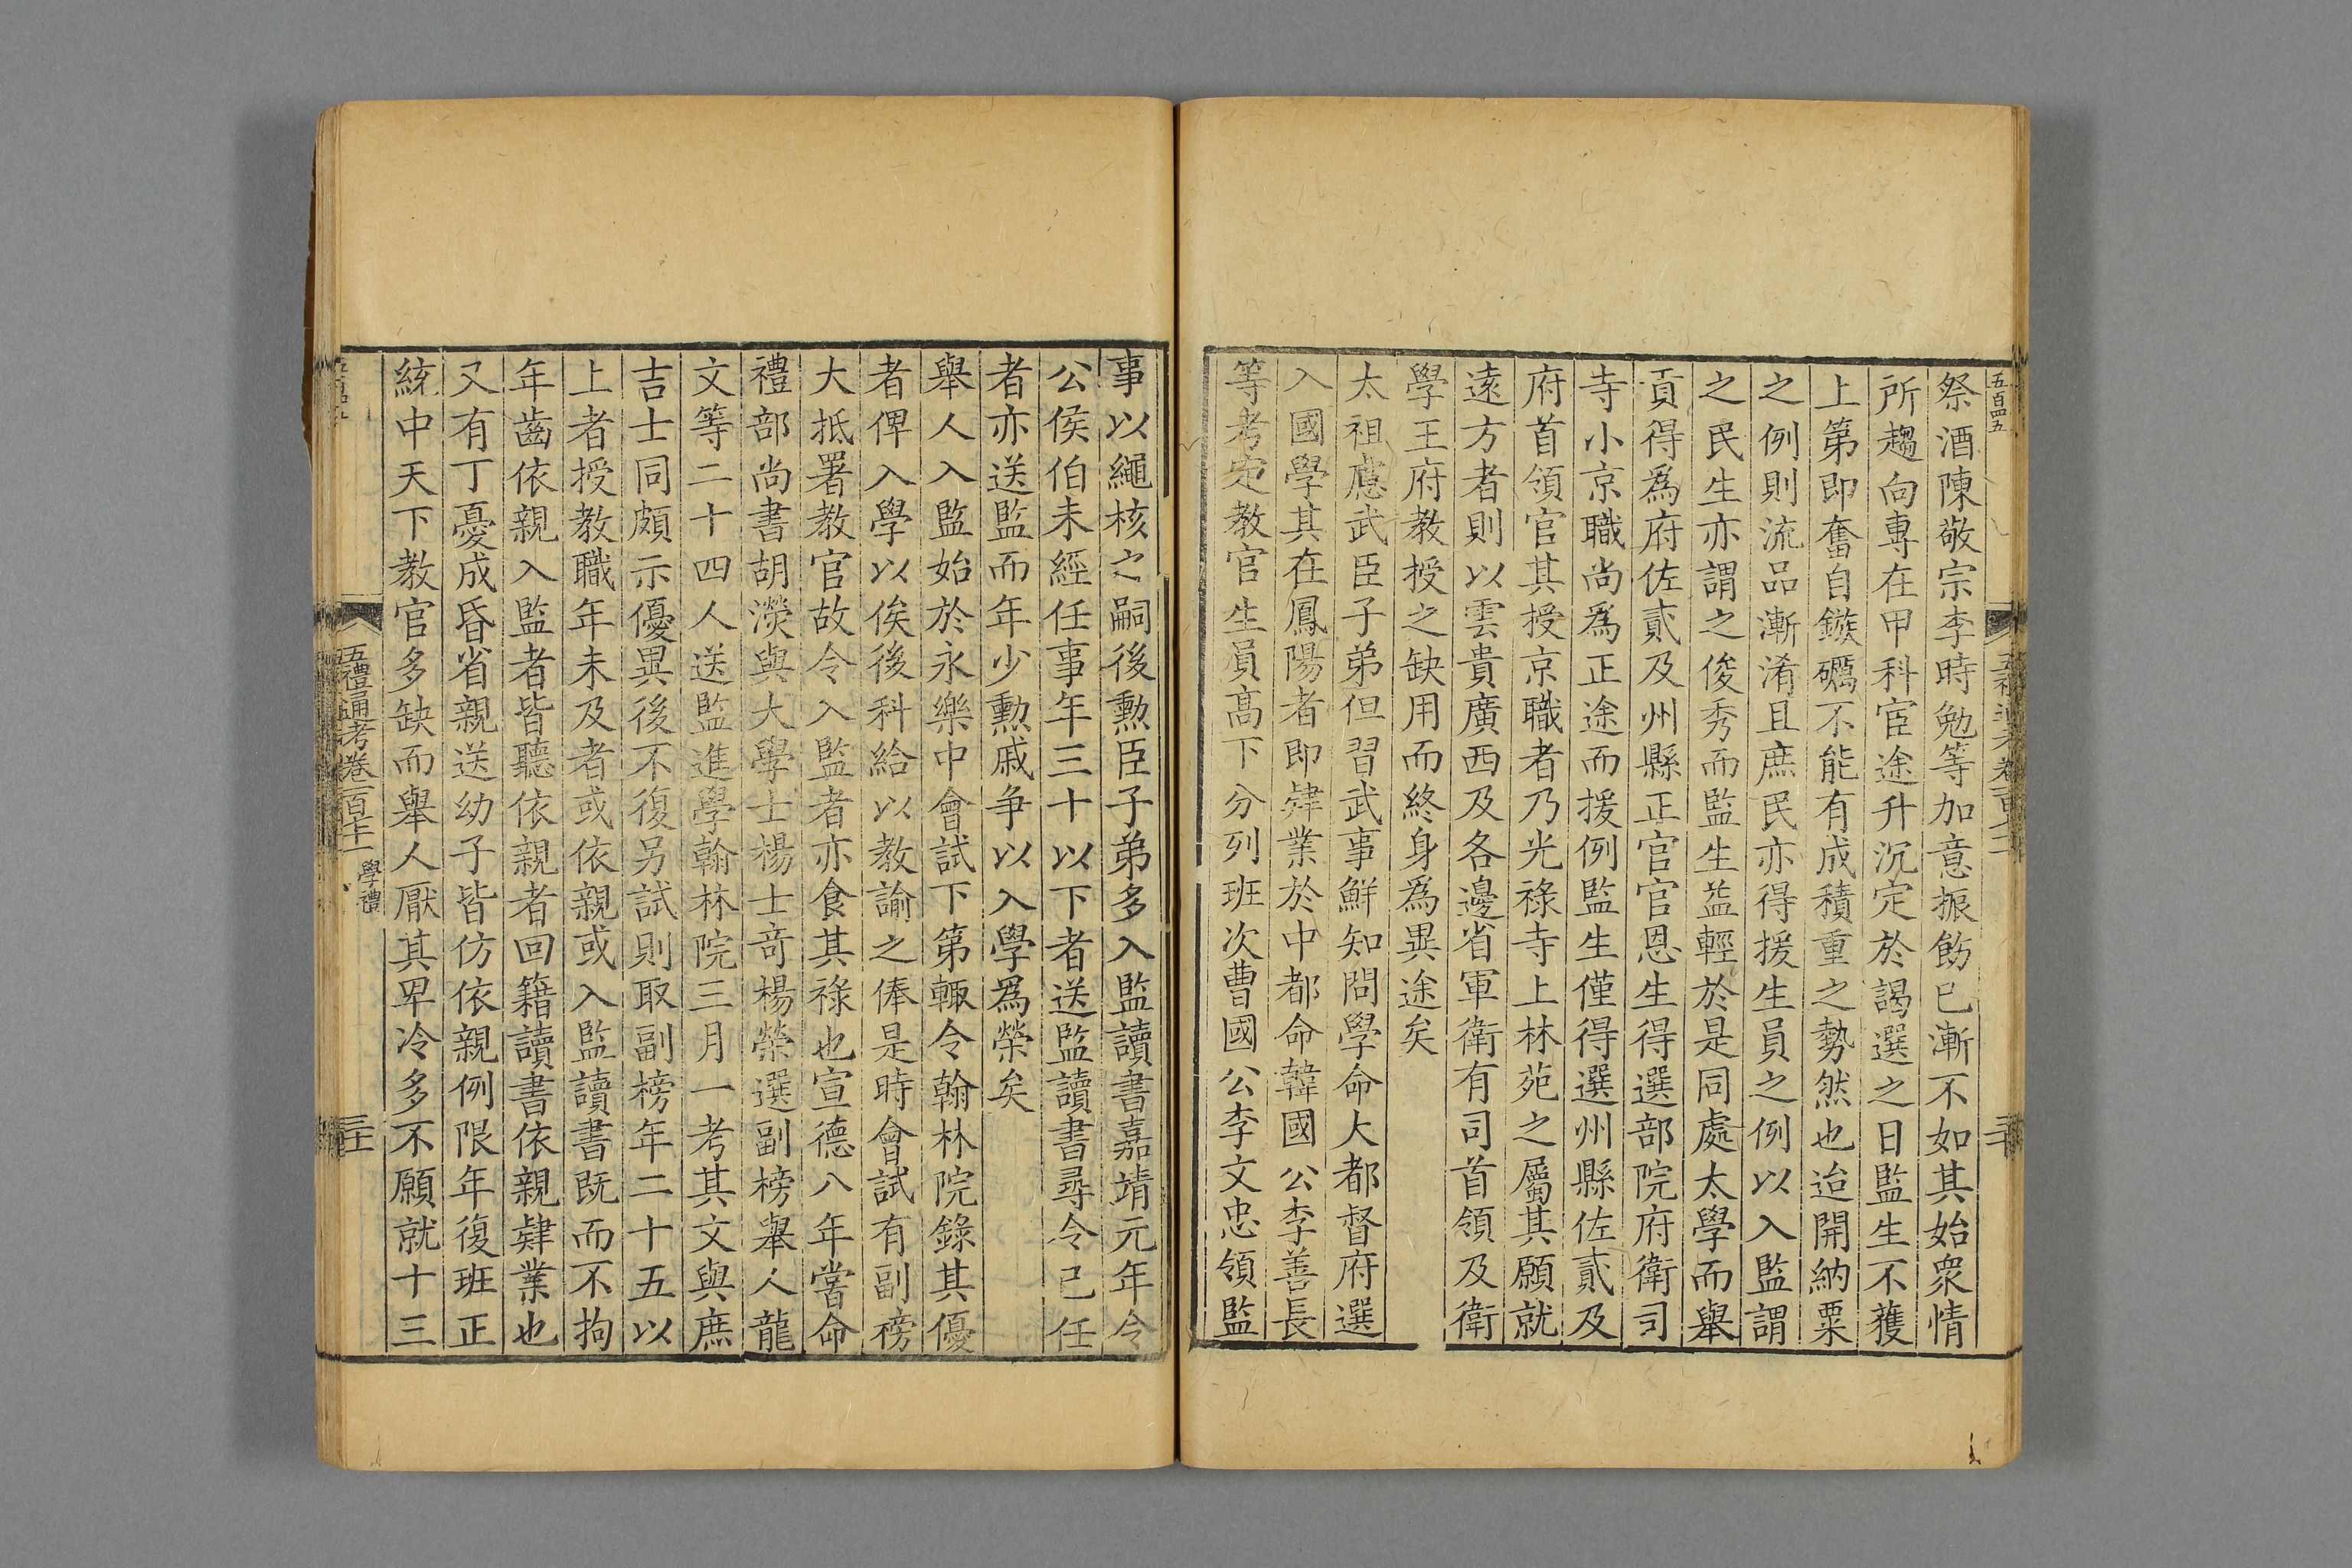 五百四五
祭酒陳敬宗李時勉等加意振飭已漸不如其始衆情
所趨向專在甲科宦途升沉定於謁選之日監生不獲
上第即奮自鏃礪不能有成積重之勢然也迨開納粟
之例則流品漸淆且庶民亦得援生員之例以入監謂
之民生亦謂之俊秀而監生益輕於是同處太學而舉
貢得爲府佐貳及州縣正官官恩生得選部院府衛司
寺小京職尚爲正途而援例監生僅得選州縣佐貳及
府首領官其授京職者乃光祿寺上林苑之屬其願就
遠方者則以雲貴廣西及各邊省軍衛有司首領及衛
學王府教授之缺用而終身爲異途矣
太祖慮武臣子弟但習武事鮮知問學命大都督府選
入國學其在鳳陽者即肄業於中都命韓國公李善長
等考定教官生員高下分列班次曹國公李文忠領監
事以繩核之嗣後勳臣子弟多入監讀書嘉靖元年令
公侯伯未經任事年三十以下者送監讀書尋令已任
者亦送監而年少勳戚爭以入學爲榮矣
舉人入監始於永樂中會試下第輒令翰林院錄其優
者俾入學以俟後科給以教諭之俸是時會試有副榜
大抵署教官故令入監者亦食其祿也宣德八年嘗命
禮部尚書胡濙與大學士楊士奇楊榮選副榜舉人龍
文等二十四人送監進學翰林院三月一考其文與庶
吉士同頗示優異後不復另試則取副榜年二十五以
上者授教職年未及者或依親或入監讀書既而不拘
年齒依親入監者皆聽依親者回籍讀書依親肄業也
又有丁憂成昏省親送幼子皆仿依親例限年復班正
統中天下教官多缺而舉人厭其卑冷多不願就十三
五禮通考卷一百七十一 學禮